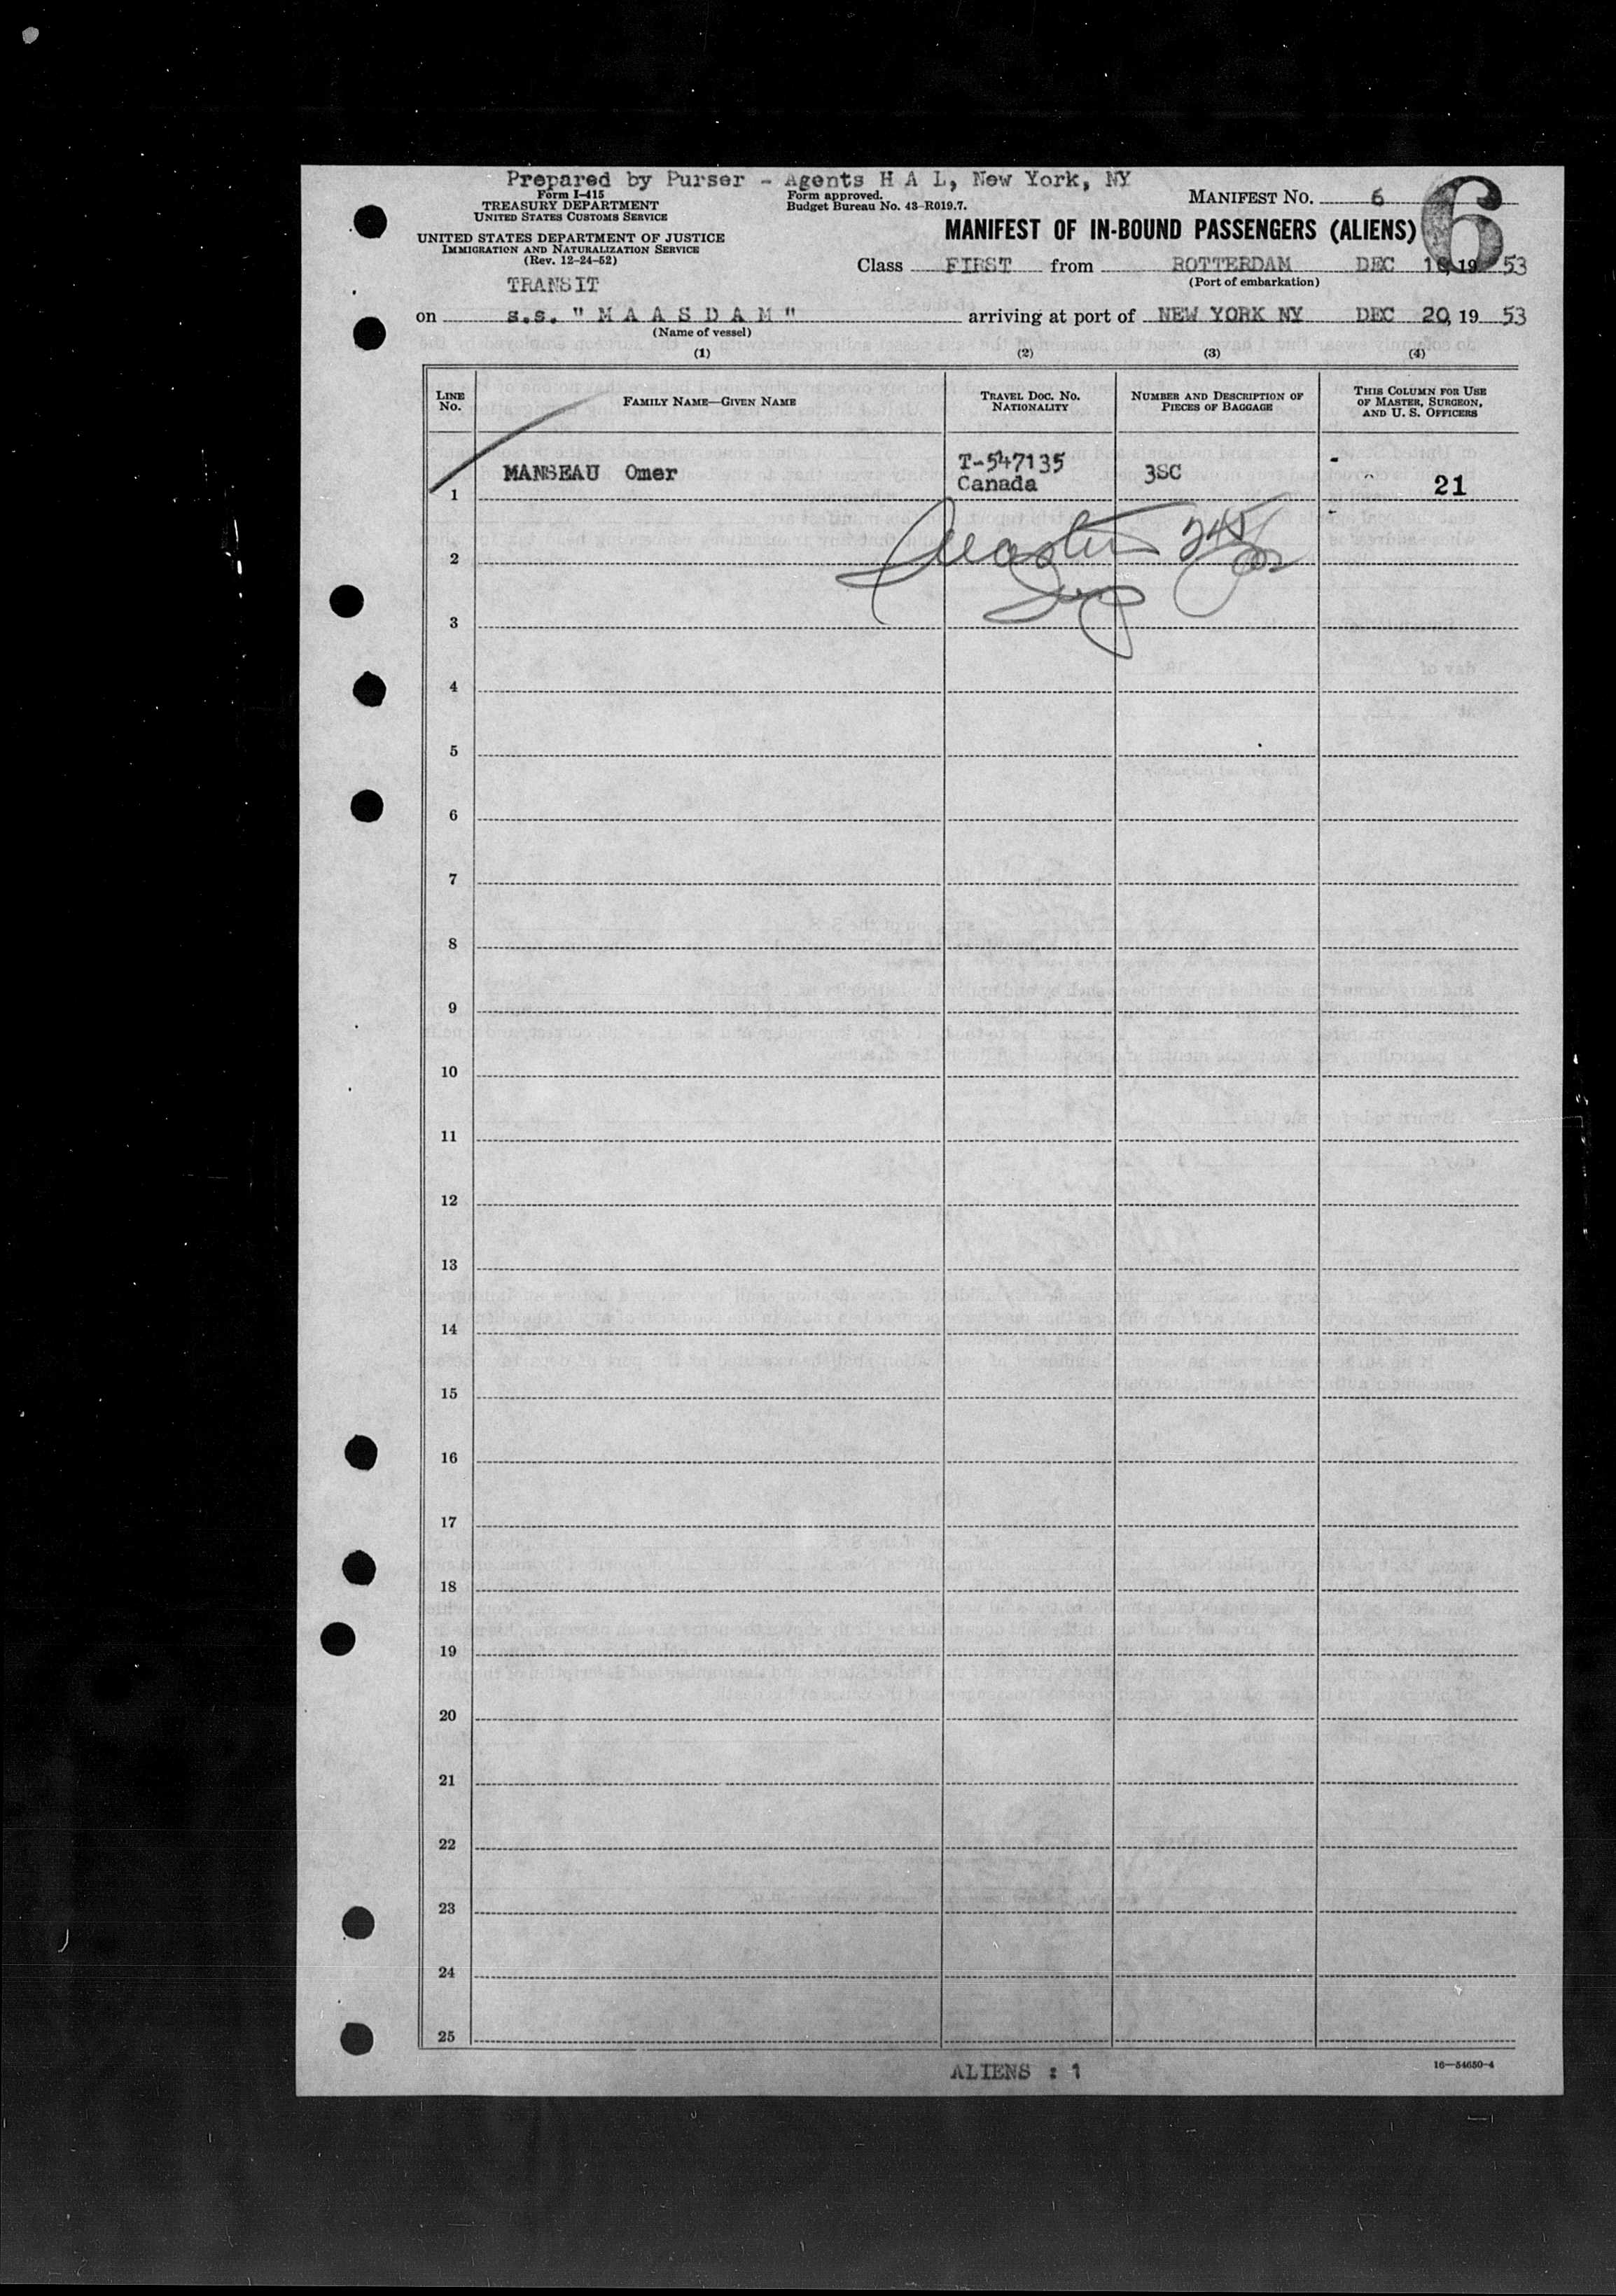 Prepared by Purser - Agents H A L, New York, NY
Form I-415
TREASURY DEPARTMENT
UNITED STATES CUSTOMS SERVICE
Form approved.
Budget Bureau No. 43-R019.7.
MANIFEST NO. 6
6
UNITED STATES DEPARTMENT OF JUSTICE
IMMIGRATION AND NATURALIZATION SERVICE
(Rev. 12-24-52)
MANIFEST OF IN-BOUND PASSENGERS (ALIENS)
Class FIRST from ROTTERDAM DEC 19 53
(Port of embarkation)
TRANSIT
on s.s. " M A A S D A M " arriving at port of NEW YORK NY DEC 20, 19 53
(Name of vessel)
(1) (2) (3) (4)
LINE No. FAMILY NAME—GIVEN NAME TRAVEL DOC. NO. NATIONALITY NUMBER AND DESCRIPTION OF PIECES OF BAGGAGE THIS COLUMN FOR USE OF MASTER, SURGEON, AND U. S. OFFICERS
1 MANSEAU Omer T-547135 Canada 3SC 21
2
3
4
5
6
7
8
9
10
11
12
13
14
15
16
17
18
19
20
21
22
23
24
25
ALIENS : 1
16—54650-4